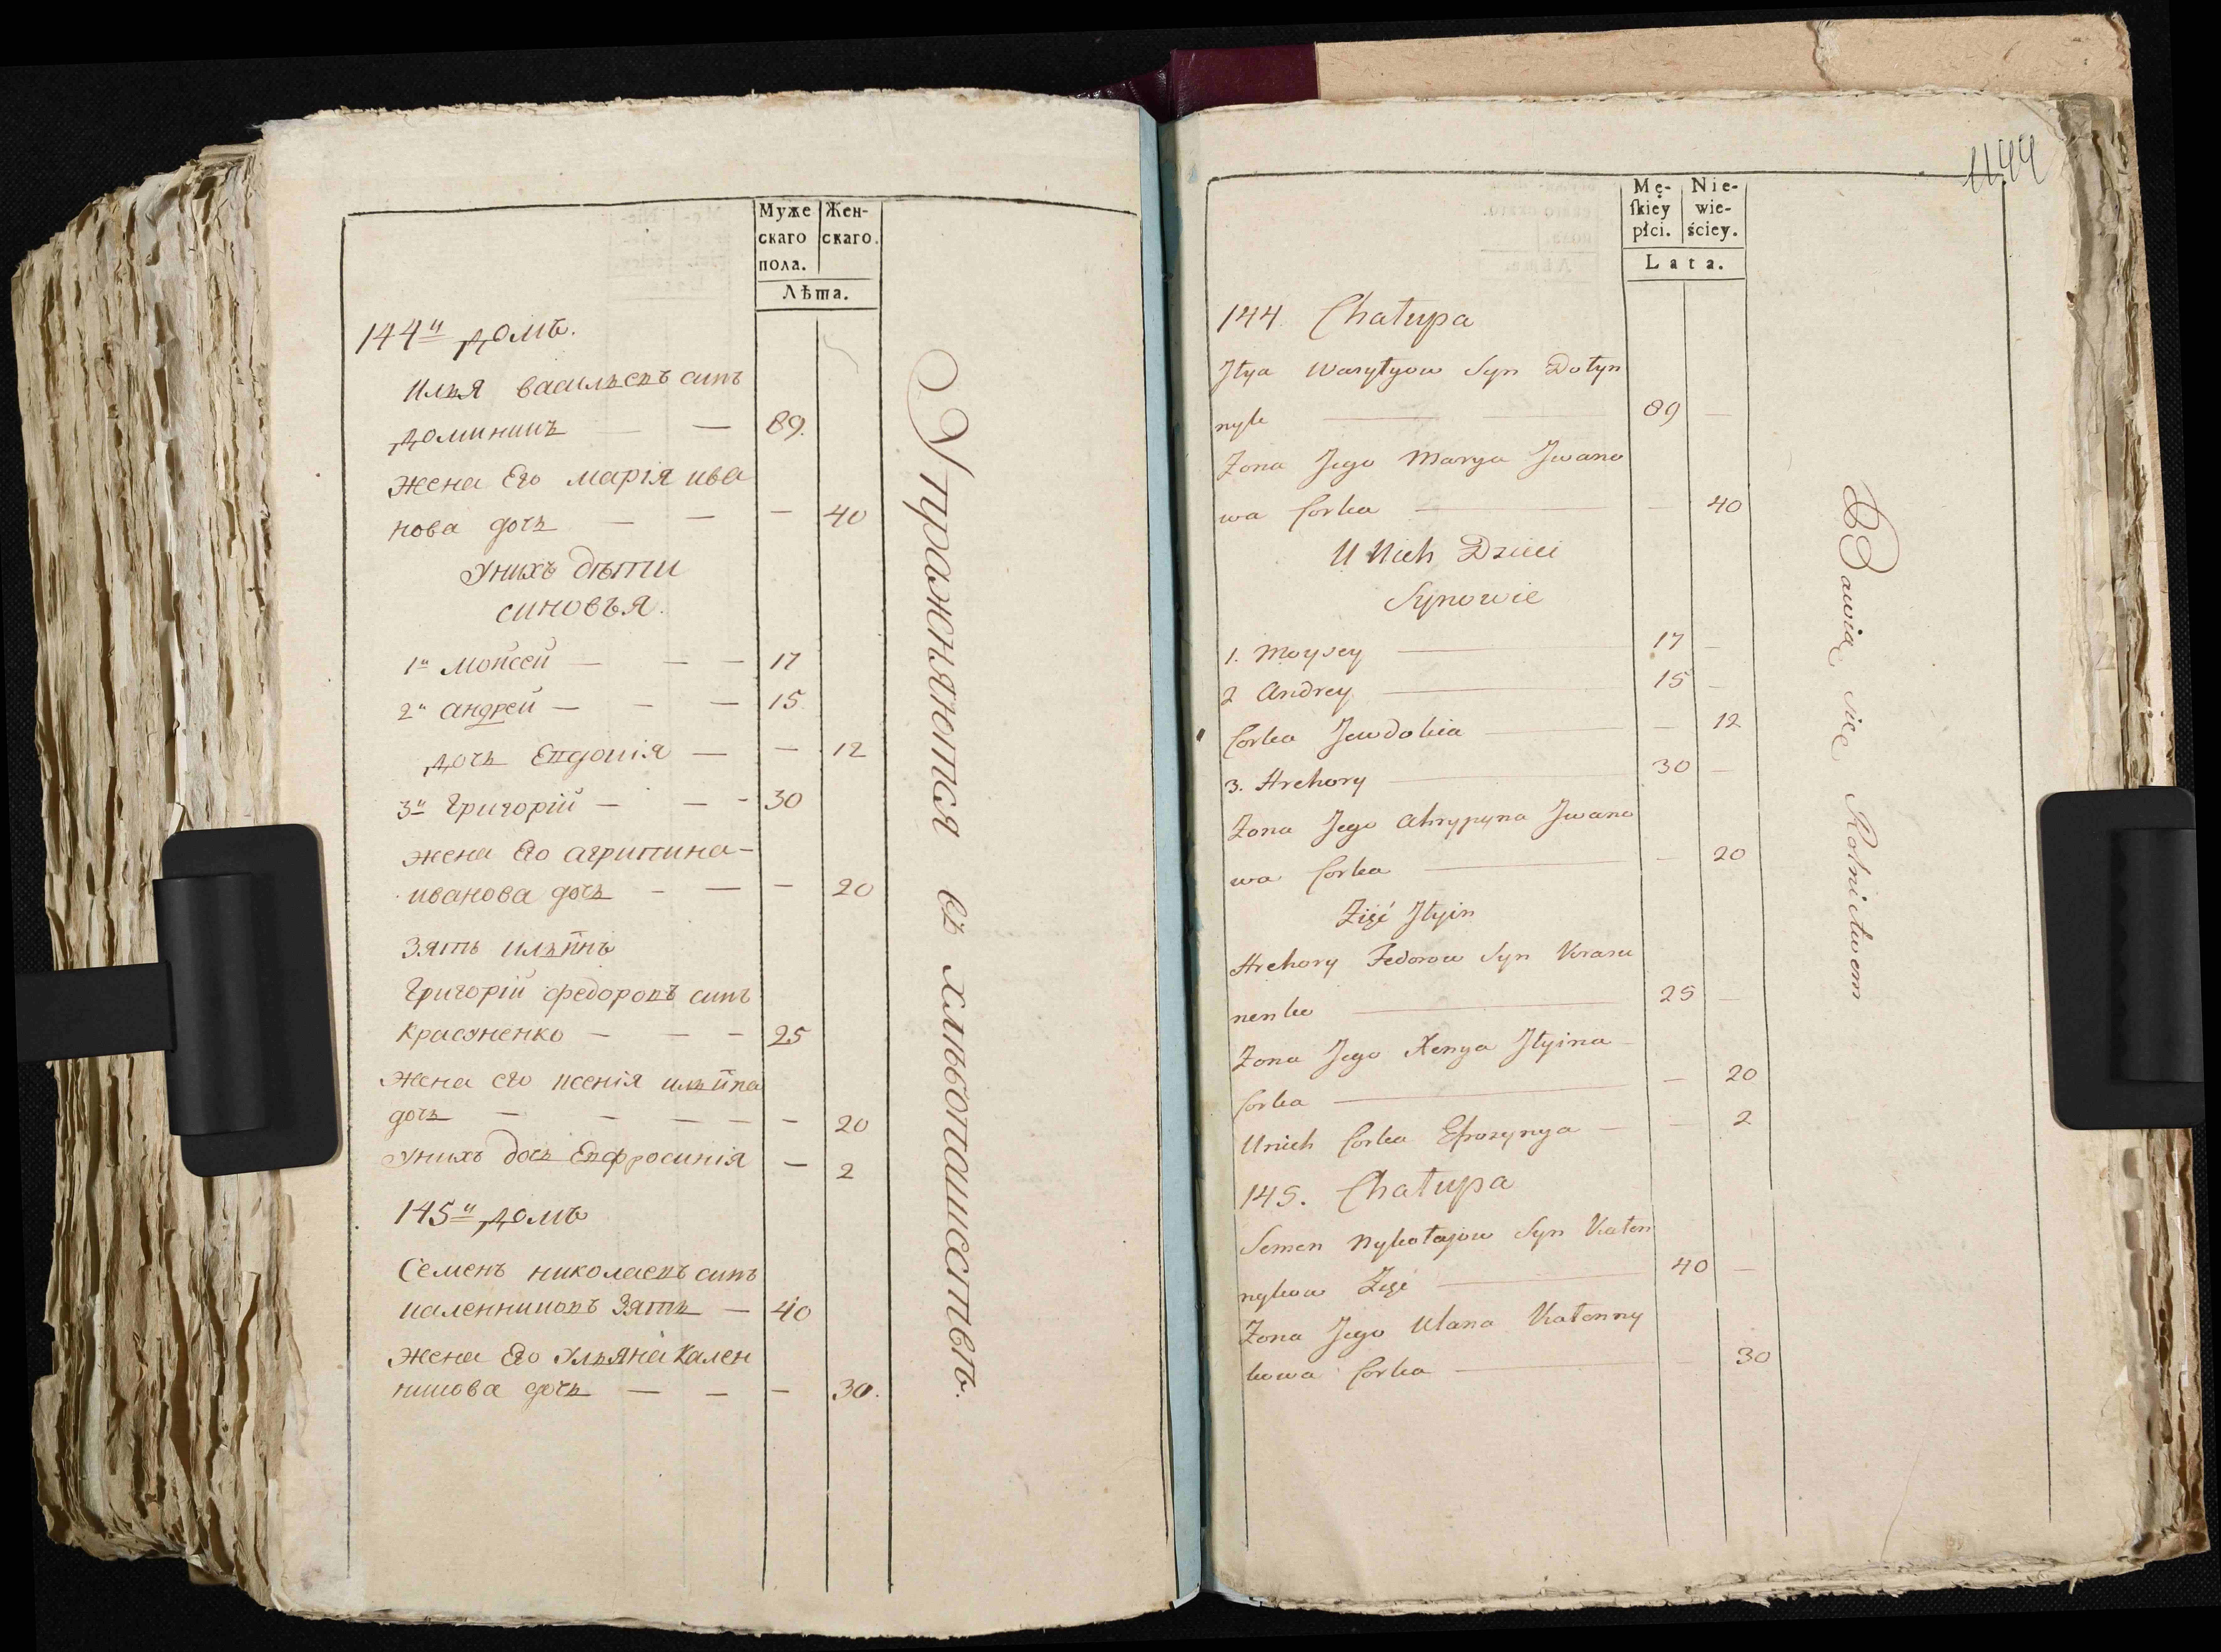 Муже
скаго
пола.
Жен-
скаго.
Лѣта.
144й домъ.
Илья васильевъ синъ
доминикъ — — 89.
Жена Его марія ива
нова дочь — — — 40
Унихъ дѣти
синовья.
1й Мойсей — — — 17
2й андрей — — — 15
дочь Евдокія — — 12
3й Григорій — — — 30
жена Его агрипина —
иванова дочь — — — 20
Зять ильинъ
Григорій федоровъ синъ
Красуненко — — — 25
Жена его ксенія ильина
дочь — — — — — 20
Унихъ дочь Евфросинія — 2
145й домъ
Семенъ николаевъ синъ
каленниковъ Зять — 40
Жена Его Ульяна Кален
никова дочь — — — 30.
Упражняются въ хлѣбопашествѣ.
1144
Mę-
ſkiey
płci.
Nie-
wie-
ściey.
Lata.
144. Chałupa
Jłya Wasyłyow Syn Dołyn
nyk — — 89 —
Zona Jego Marya Jwano
wa Corka — — 40
U Nich Dzieci
Synowie
1. Moysey — 17 —
2 Andrey — 15 —
Corka Jewdokia — — 12
3. Hrehory — 30 —
Zona Jego Ahrypyna Jwano
wa Corka — — 20
Zięć Jłyin
Hrehory Fedorow Syn Krasu
nenko — 25 —
Zona Jego Xenya Jłyina
Corka — — 20
Unich Corka Efrozynya — — 2
145. Chałupa
Semen Nykołajow Syn Kałen
nykow Zięć — 40 —
Zona Jego Ulana Kałenny
kowa Corka — — 30
Bawią się Rolnictwem